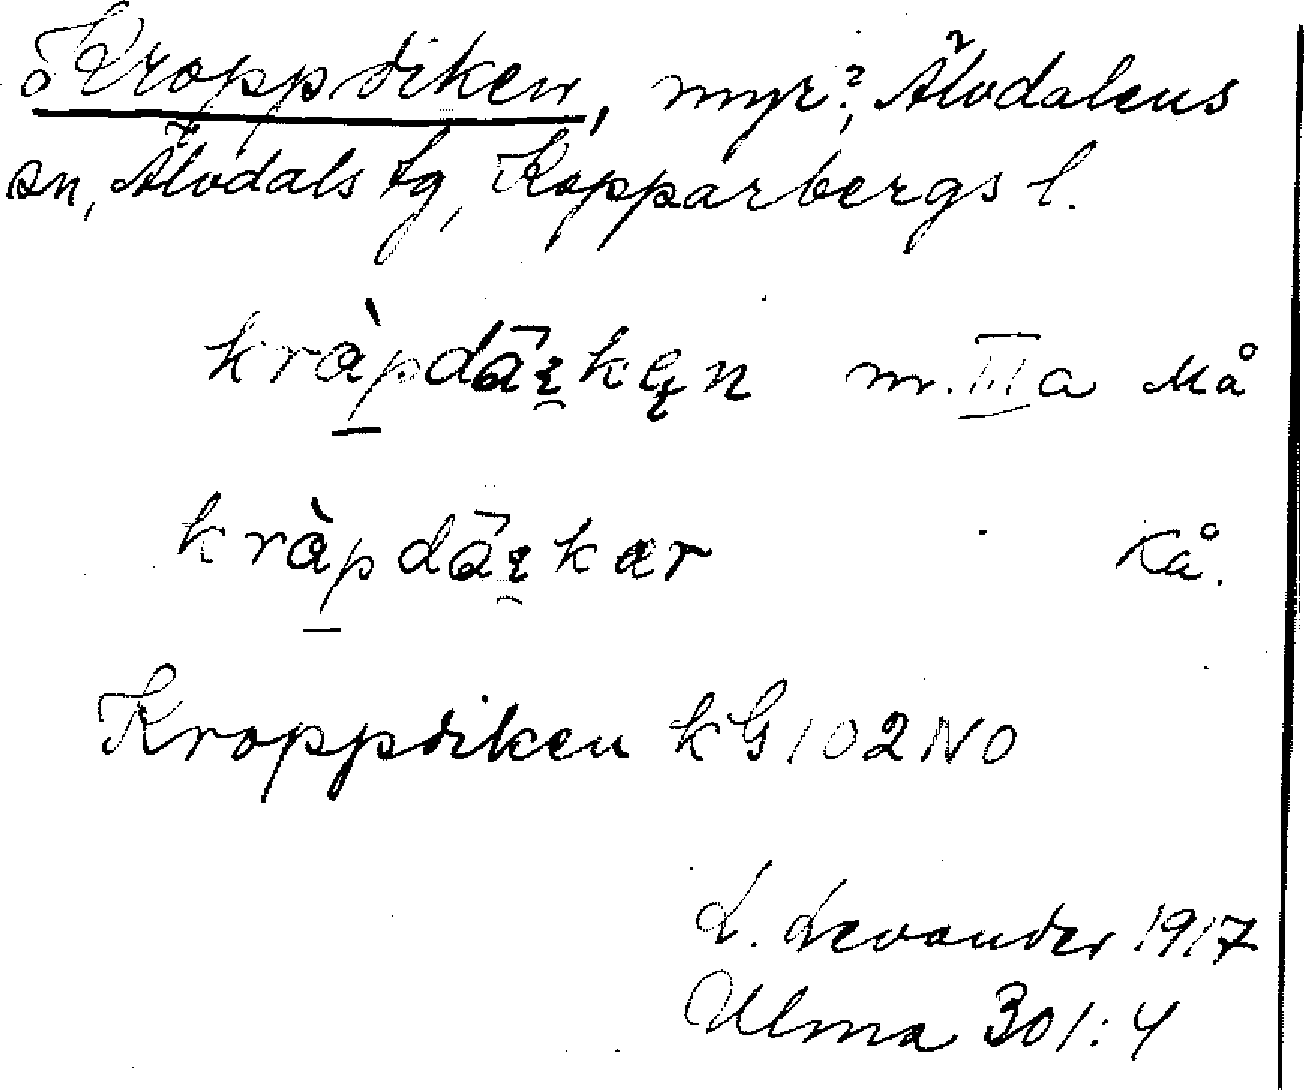 Kroppdiken, myr?, Älvdalens
sn, Älvdals tg, Kopparbergs l.
kràpdāı̨kęn m. III a Må
kràpdāı̨kær Kå.
Kroppdiken KG 102 NO
L. Levander 1917
Ulma 301:4